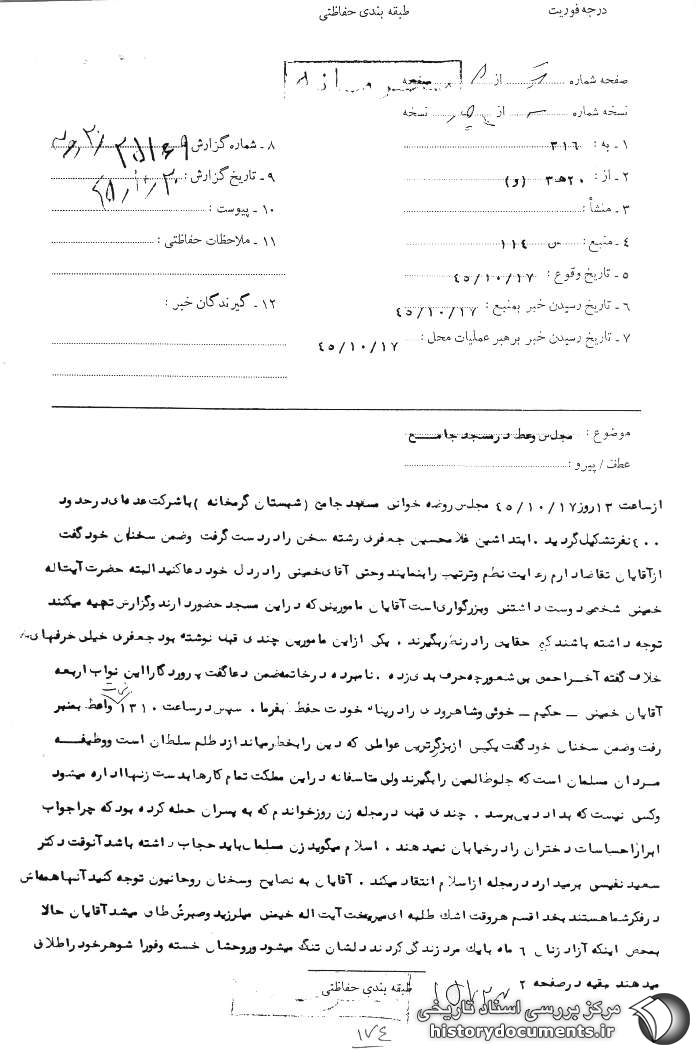 درجه فوریت
طبقه بندی حفاظتی
صفحه شماره از صفحه
نسخه شماره از نسخه
۱ ـ به : ۳۱۶
۲ ـ از : ۲۰ هـ ۳ (و)
۳ ـ منشأ :
۴ ـ منبع : س ۱۱۴
۵ ـ تاریخ وقوع : ۴۵/۱۰/۱۷
۶ ـ تاریخ رسیدن خبر بمنبع : ۴۵/۱۰/۱۷
۷ ـ تاریخ رسیدن خبر برهبر عملیات محل : ۴۵/۱۰/۱۷
۸ ـ شماره گزارش
۹ ـ تاریخ گزارش :
۱۰ ـ پیوست :
۱۱ ـ ملاحظات حفاظتی :
۱۲ ـ گیرندگان خبر :
موضوع : مجلس وعظ در مسجد جامع
عطف / پیرو :
از ساعت ۱۳ روز ۴۵/۱۰/۱۷ مجلس روضه خوانی مسجد جامع (شبستان گرمخانه) با شرکت عده ای در حدود
۴۰۰ نفر تشکیل گردید . ابتدا شیخ غلامحسین جعفری رشته سخن را در دست گرفت وضمن سخنان خود گفت
از آقایان تقاضا دارم رعایت نظم وترتیب را بنمایند وحتی آقای خمینی را در دل خود دعا کنید البته حضرت آیت اله
خمینی شخص دوست داشتنی وبزرگواری است آقایان مامورینی که در این مسجد حضور دارند وگزارش تهیه میکنند
توجه داشته باشند که حقایق را در نظر بگیرند . یکی از این مامورین چندی قبل نوشته بود جعفری خیلی حرفهای
خلاف گفته آخر احمق بی شعور چه حرف بدی زده . نامبرده در خاتمه ضمن دعا گفت پروردگارا این نواب اربعه
آقایان خمینی ـ حکیم ـ خوئی وشاهرودی را در پناه خودت حفظ بفرما . سپس در ساعت ۱۳۱۰ واعظ بمنبر
رفت وضمن سخنان خود گفت یکی از بزرگترین عواملی که دین را بخطر میاندازد ظلم سلطان است ووظیفه
مردان مسلمان است که جلو ظالمین را بگیرند ولی متاسفانه در این مملکت تمام کارها بدست زنها اداره میشود
وکسی نیست که بداد دین برسد . چندی قبل در مجله زن روز خواندم که به پسران حمله کرده بود که چرا جواب
ابراز احساسات دختران را در خیابان نمیدهند . اسلام میگوید زن مسلمان باید حجاب داشته باشد آنوقت دکتر
سعید نفیسی برمیدارد در مجله از اسلام انتقاد میکند . آقایان به نصایح وسخنان روحانیون توجه کنید آنها همه اش
در فکر شما هستند بخدا قسم هر وقت اشک طلبه ای میریخت آیت اله خمینی میلرزید وصبرش طاق میشد آقایان حالا
بمحض اینکه آزاد زنان ۶ ماه با یک مرد زندگی کردند دلشان تنگ میشود وروحشان خسته وفورا شوهر خود را طلاق
میدهند بقیه در صفحه ۲
طبقه بندی حفاظتی
۱۷۴
مرکز بررسی اسناد تاریخی
historydocuments.ir